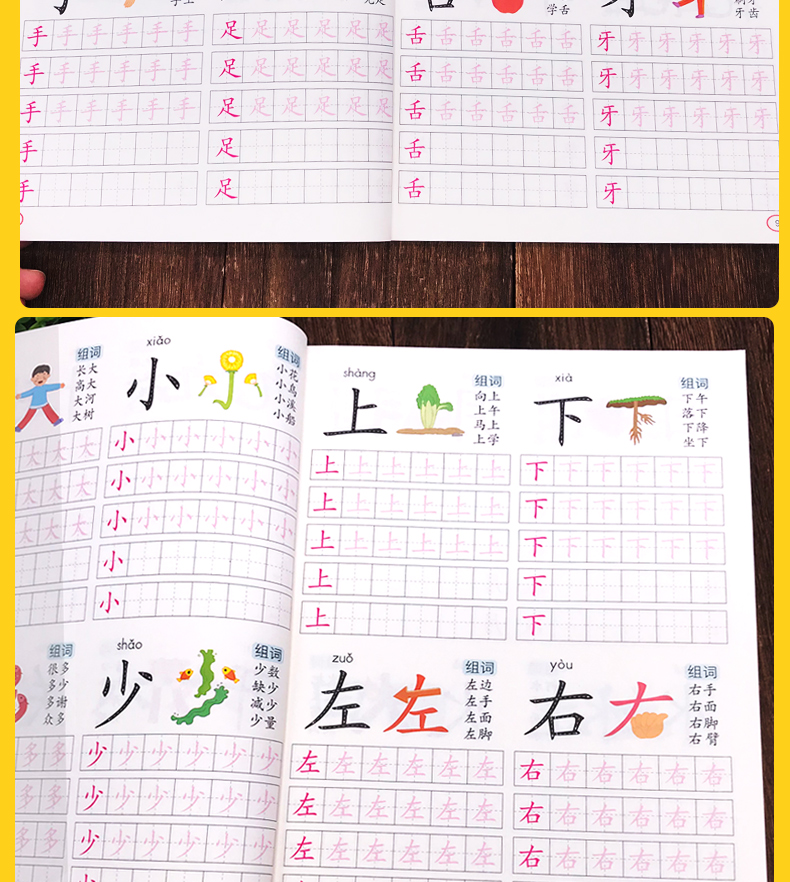 学舌
牙齿
手 手 手 手 手 手
足 足 足 足 足 足
舌 舌 舌 舌 舌 舌
牙 牙 牙 牙 牙 牙
手 手 手 手 手 手
足 足 足 足 足 足
舌 舌 舌 舌 舌 舌
牙 牙 牙 牙 牙 牙
手 手 手 手 手 手
足 足 足 足 足 足
舌 舌 舌 舌 舌 舌
牙 牙 牙 牙 牙 牙
手
足
舌
牙
手
足
舌
牙
组词
长大
高大
大河
大树
大 大 大
大 大 大
大 大 大
xiǎo
小
组词
小花
小鸟
小溪
小船
小 小 小 小 小 小
小 小 小 小 小 小
小 小 小 小 小 小
小
小
shàng
上
组词
向上
上午
马上
上学
上 上 上 上 上 上
上 上 上 上 上 上
上 上 上 上 上 上
上
上
xià
下
组词
下午
落下
下降
坐下
下 下 下 下 下 下
下 下 下 下 下 下
下 下 下 下 下 下
下
下
组词
很多
多少
多谢
众多
多 多
多 多
多 多
shǎo
少
组词
少数
缺少
减少
少量
少 少 少 少 少 少
少 少 少 少 少 少
少 少 少 少 少 少
zuǒ
左 左
组词
左边
左手
左面
左脚
左 左 左 左 左 左
左 左 左 左 左 左
左 左 左 左 左 左
yòu
右
组词
右手
右面
右脚
右臂
右 右 右 右 右 右
右 右 右 右 右 右
右 右 右 右 右 右